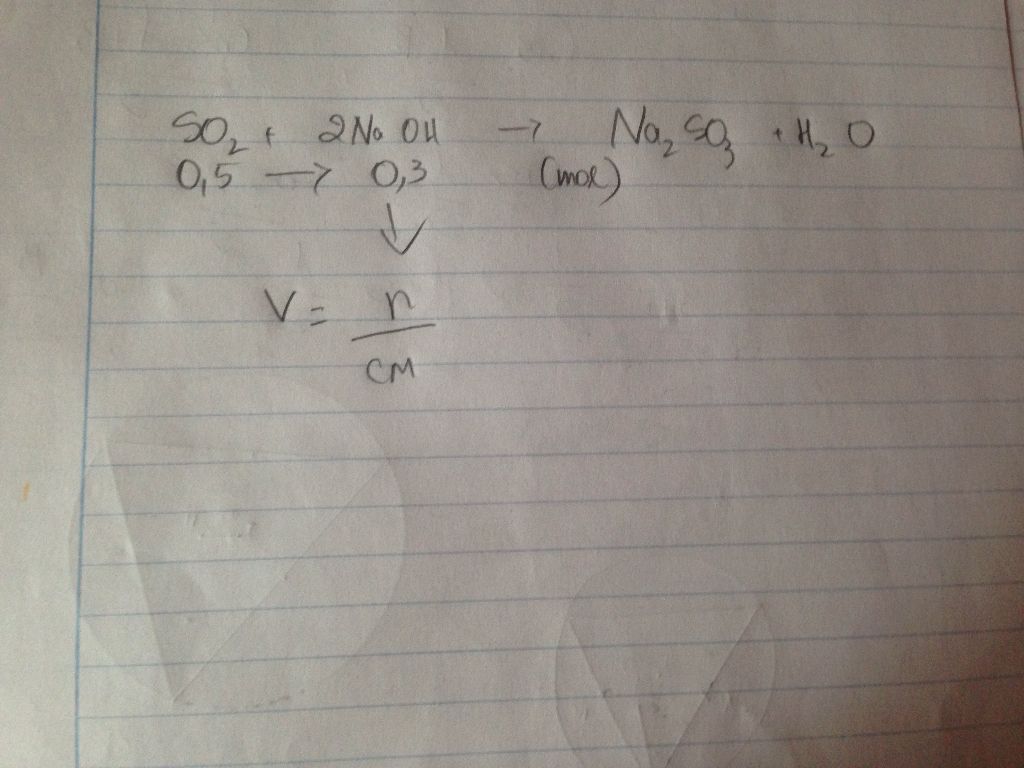 SO₂ + 2NaOH → Na₂SO₃ + H₂O
0,5 → 0,3 (mol)
↓
V = n
CM